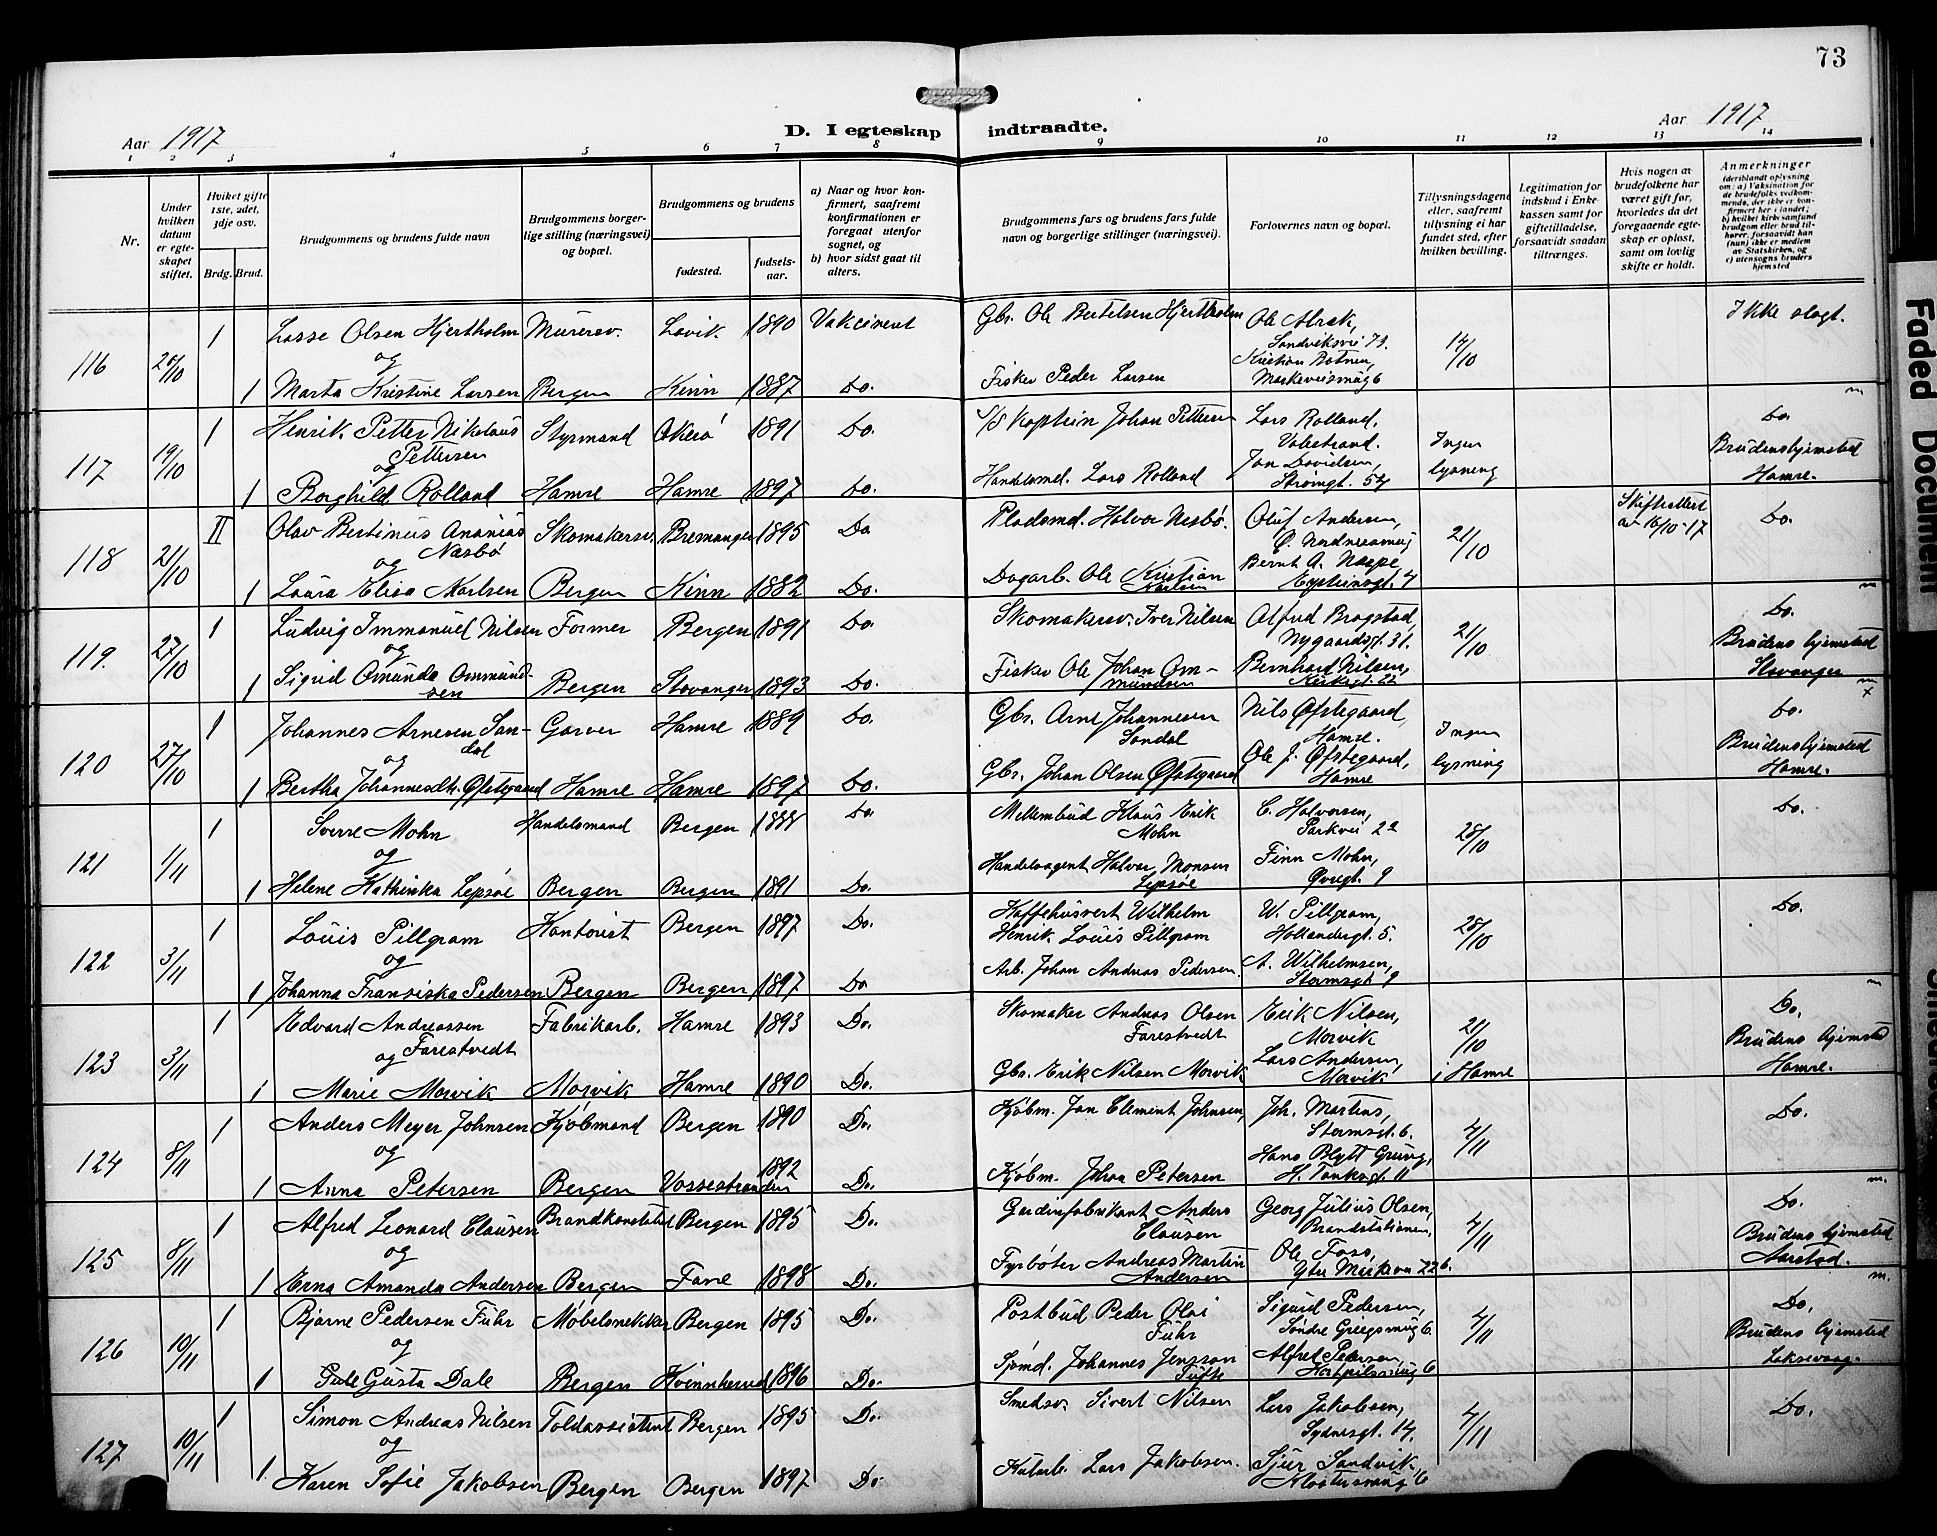 73
Aar 1917
D. I egteskap indtraadte.
Aar 1917
1 2 3 4 5 6 7 8 9 10 11 12 13 14
Nr.
Under hvilken datum er egteskapet stiftet.
Hvilket gifte 1ste, 2det, 3dje osv.
Brdg. Brud.
Brudgommens og brudens fulde navn
Brudgommens borgerlige stilling (næringsvei) og bopæl.
Brudgommens og brudens
fødested.
fødselsaar.
a) Naar og hvor konfirmert, saafremt konfirmationen er foregaat utenfor sognet, og
b) hvor sidst gaat til alters.
Brudgommens fars og brudens fars fulde navn og borgerlige stillinger (næringsvei).
Forlovernes navn og bopæl.
Tillysningsdagene eller, saafremt tillysning ei har fundet sted, efter hvilken bevilling.
Legitimation for indskud i Enkekassen samt for giftetilladelse, forsaavidt saadan tiltrænges.
Hvis nogen av brudefolkene har været gift før, hvoriedes da det foregaaende egteskap er opløst, samt om lovlig skifte er holdt.
Anmerkninger
116 20/10 1 Lasse Olsen Hjertholm Murersv. Lavik 1890 Vakcinert Gbr. Ole Bertelsen Hjertholm Sandviksvei 79. 14/10 Ikke slegt.
og
1 Marta Kristine Larsen Bergen Kinn 1887 Do. Fisker Peder Larsen
117 19/10 1 Henrik Petter Nikolaus Pettersen Styrmand 1891 Do. S/S Kaptein Johan Pettersen Lars Rolland, Ingen lysning Do. Brudens hjemsted Hamre.
og
1 Borghild Rolland Hamre Hamre 1897 Do. Handelsmd. Lars Rolland Jan Davidsen, Stromgt. 54
118 21/10 II Olav Bertinus Ananias Næsbø Skomakersv. Bremanger 1895 Do Pladsmd. Halvor Nesbø. Oluf Andersen, 21/10 Skifteattest av 16/10-17 Do.
og
1 Laura Elisa Karlsen Bergen Kinn 1882 Do. Dagarb. Ole Kristian Karlsen Eysteinsgt. 4
119. 27/10 1 Ludvig Immanuel Nilsen Former Bergen 1891 Do. Skomakersv. Iver Nilsen Alfred Bragstad, Nygaardsgt. 31. 21/10 Do. Brudens hjemsted Stavanger
og
1 Sigrid Amunda Ommundsen Bergen Stavanger 1893 Do. Fisker Ole Johan Ommundsen Bernhard Nilsen, Kirkegt. 22
120 27/10 1 Johannes Arnesen Sandal Garver Hamre 1889 Do. Gbr. Arne Johannesen Sandal Nils Øfstegaard, Hamre. Ingen lysning Do. Brudens hjemsted Hamre.
og
1 Bertha Johannesdtr. Øfstegaard Hamre Hamre 1897 Do. Gbr. Johan Olsen Øfstegaard Ole J. Øfstegaard, Hamre
121 1/11 1 Sverre Mohn Handelsmand Bergen Do Mellembud Klaus Erik Mohn C. Halvorsen, Parkvei 22 28/10 Do.
og
1 Helene Kathinka Lepsøe Bergen Bergen 1891 Do. Handelsagent Halvor Monsen Lepsøe Finn Mohn, Øvregt. 9
122 3/11 1 Louis Pillgram Kontorist Bergen 1897 Do. Kaffehusvert Wilhelm Henrik Louis Pillgram W. Pillgram, Hollendergt. 5. 28/10 Do.
og
1 Johanna Fransiska Pedersen Bergen Bergen 1897 Do Arb. Johan Andreas Pedersen. A. Wilhelmsen, Stormsgt. 9
123 3/11 1 Edvard Andreassen Farestvedt Fabrikarb. Hamre 1893 Do. Skomaker Andreas Olsen Farestvedt Erik Nilsen, Morvik 21/10 i Hamre Do. Brudens hjemsted Hamre.
og
1 Marie Morvik Morvik Hamre 1890 Do. Gbr. Erik Nilsen Morvik Lars Andersen, Morvik
124 8/11 1 Anders Meyer Johnsen Kjøbmand Bergen 1890 Do. Kjøbm. Jan Clement Johnsen, Joh. Martens, Stormsgt. 6. 4/11 Do.
og
1 Anna Petersen Bergen Vossestranden 1892 Do. Kjøbm. Johan Petersen Hans Blytt Grung, H. Tanksgt. 11
125 8/11 1 Alfred Leonard Clausen Brandkonstabel Bergen 1895 Do. Gardinfabrikant Anders Clausen Georg Julius Olsen, Brandstationen, 4/11 Do. Brudens hjemsted Aarstad.
og
1 Erna Amanda Andersen Bergen Fane 1898 Do. Fyrbøter Andreas Martin Andersen Ole Foss, Ytre Markevei 22 b.
126 10/11 1 Bjarne Pedersen Fuhr Møbelsnekker Bergen 1895 Do. Postbud Peder Olai Fuhr Sigurd Pedersen, Søndre Griegsmug 6. 4/11 Do. Brudens hjemsted Laksevaag.
og
1 Gusta Dale Bergen Kvinnherred 1896 Do. Sjømd. Johannes Jensson Tufte Alfred Pedersen,
127 10/11 1 Simon Andreas Nilsen Toldassistent Bergen 1895 Do. Smedsv. Sivert Nilsen Lars Jakobsen, Sydnesgt. 14. 4/11 Do.
og
1. Karen Sofie Jakobsen Bergen Bergen 1897 Do. Lars Jakobsen. Sjur Sandvik, Klostersmug 16
Faded Document